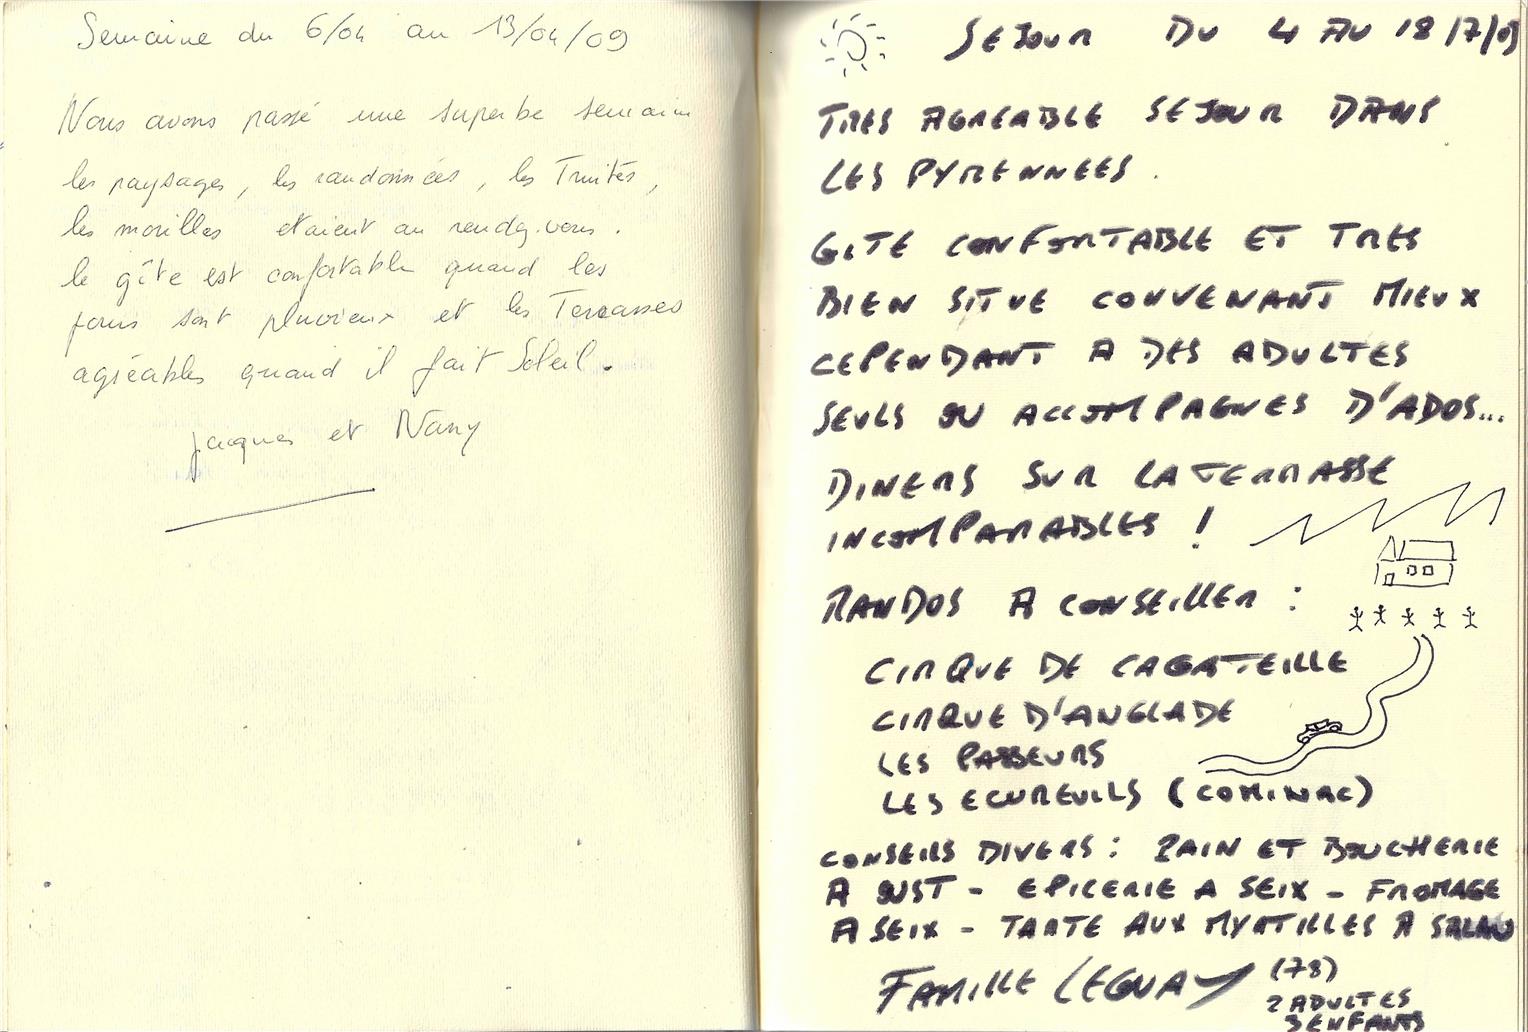 Semaine du 6/04 au 13/04/09
Nous avons passé une superbe semaine
les paysages, les randonnées, les Truites,
les morilles etaient au rendez-vous.
le gîte est confortable quand les
jours sont pluvieux et les Terrasses
agréables quand il fait Soleil.
Jacques et Nany
SEJOUR DU 4 AU 18/7/09
TRES AGREABLE SEJOUR DANS
LES PYRENNEES.
GITE CONFORTABLE ET TRES
BIEN SITUE CONVENANT MIEUX
CEPENDANT A DES ADULTES
SEULS OU ACCOMPAGNES D'ADOS...
DINERS SUR LA TERRASSE
INCOMPARABLES !
RANDOS A CONSEILLER :
CIRQUE DE CAGATEILLE
CIRQUE D'ANGLADE
LES PASSEURS
LES ECUREUILS (COMINAC)
CONSEILS DIVERS : PAIN ET BOUCHERIE
A OUST - EPICERIE A SEIX - FROMAGE
A SEIX - TARTE AUX MYRTILLES A SALAU
FAMILLE LEGUAY (78)
2 ADULTES
3 ENFANTS